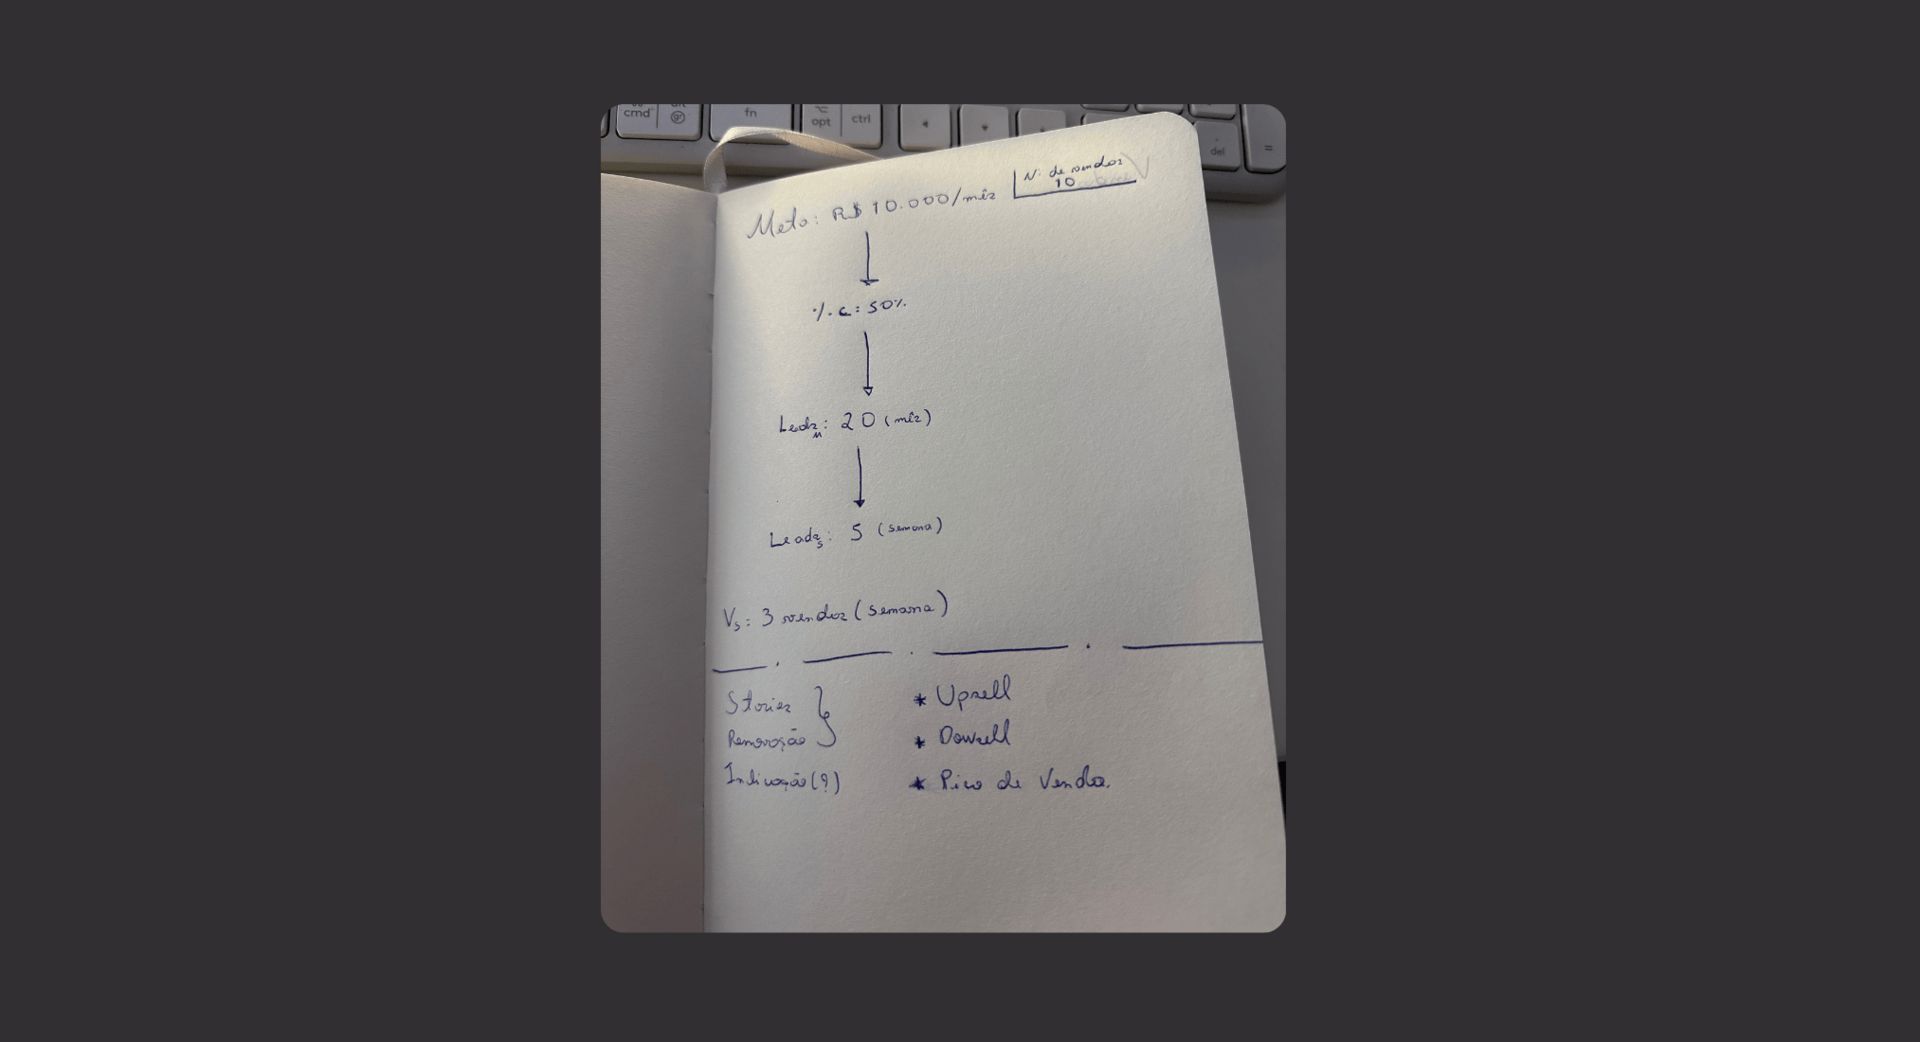 cmd
alt
fn
opt
ctrl
del
=
Nº de vendas
10
Meta: R$ 10.000/mês
%.c: 50%
Leads M: 20 (mês)
Leads s: 5 (semana)
Vs: 3 vendas (semana)
Stories
Renovação
Indicação (?)
* Upsell
* Dowsell
* Pico de Vendas.